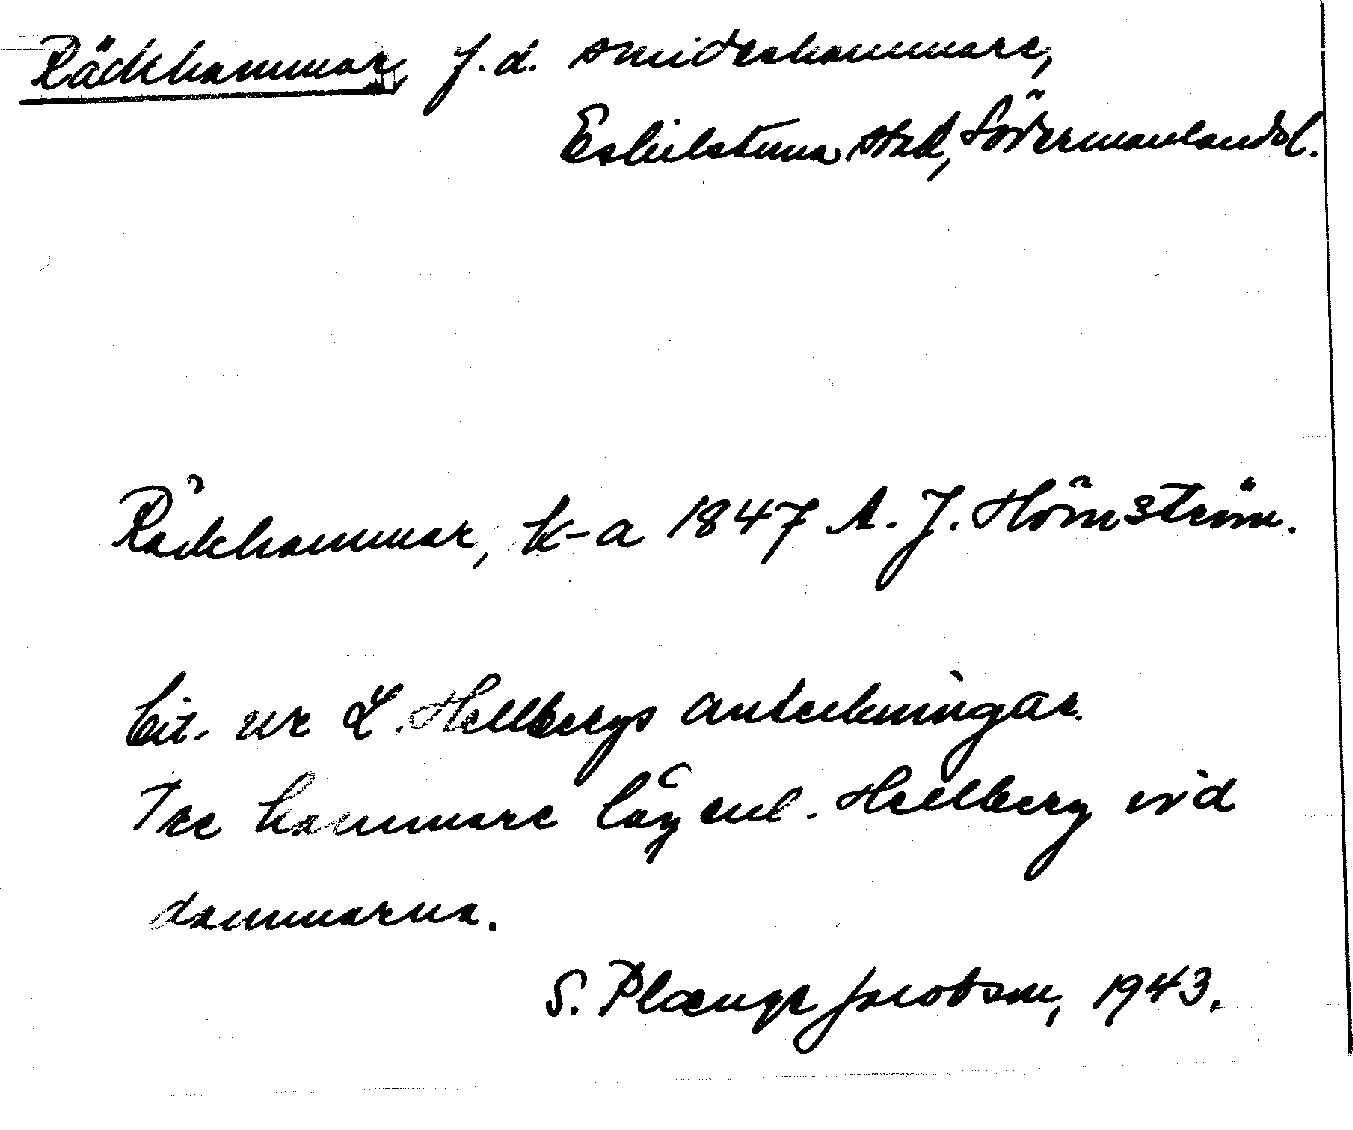 Räckhammar, f.d. smideshammare,
Eskilstuna stad, Södermanlands l.
Räckhammar, k-a 1847 A. J. Hömström.
Cit. ur L. Hellbergs anteckningar.
Tre hammare låg enl. Hellberg vid
dammarna.
S. Plænge Jacobson, 1943.